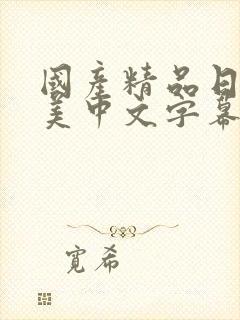 國產精品日
美中文字幕
寬希